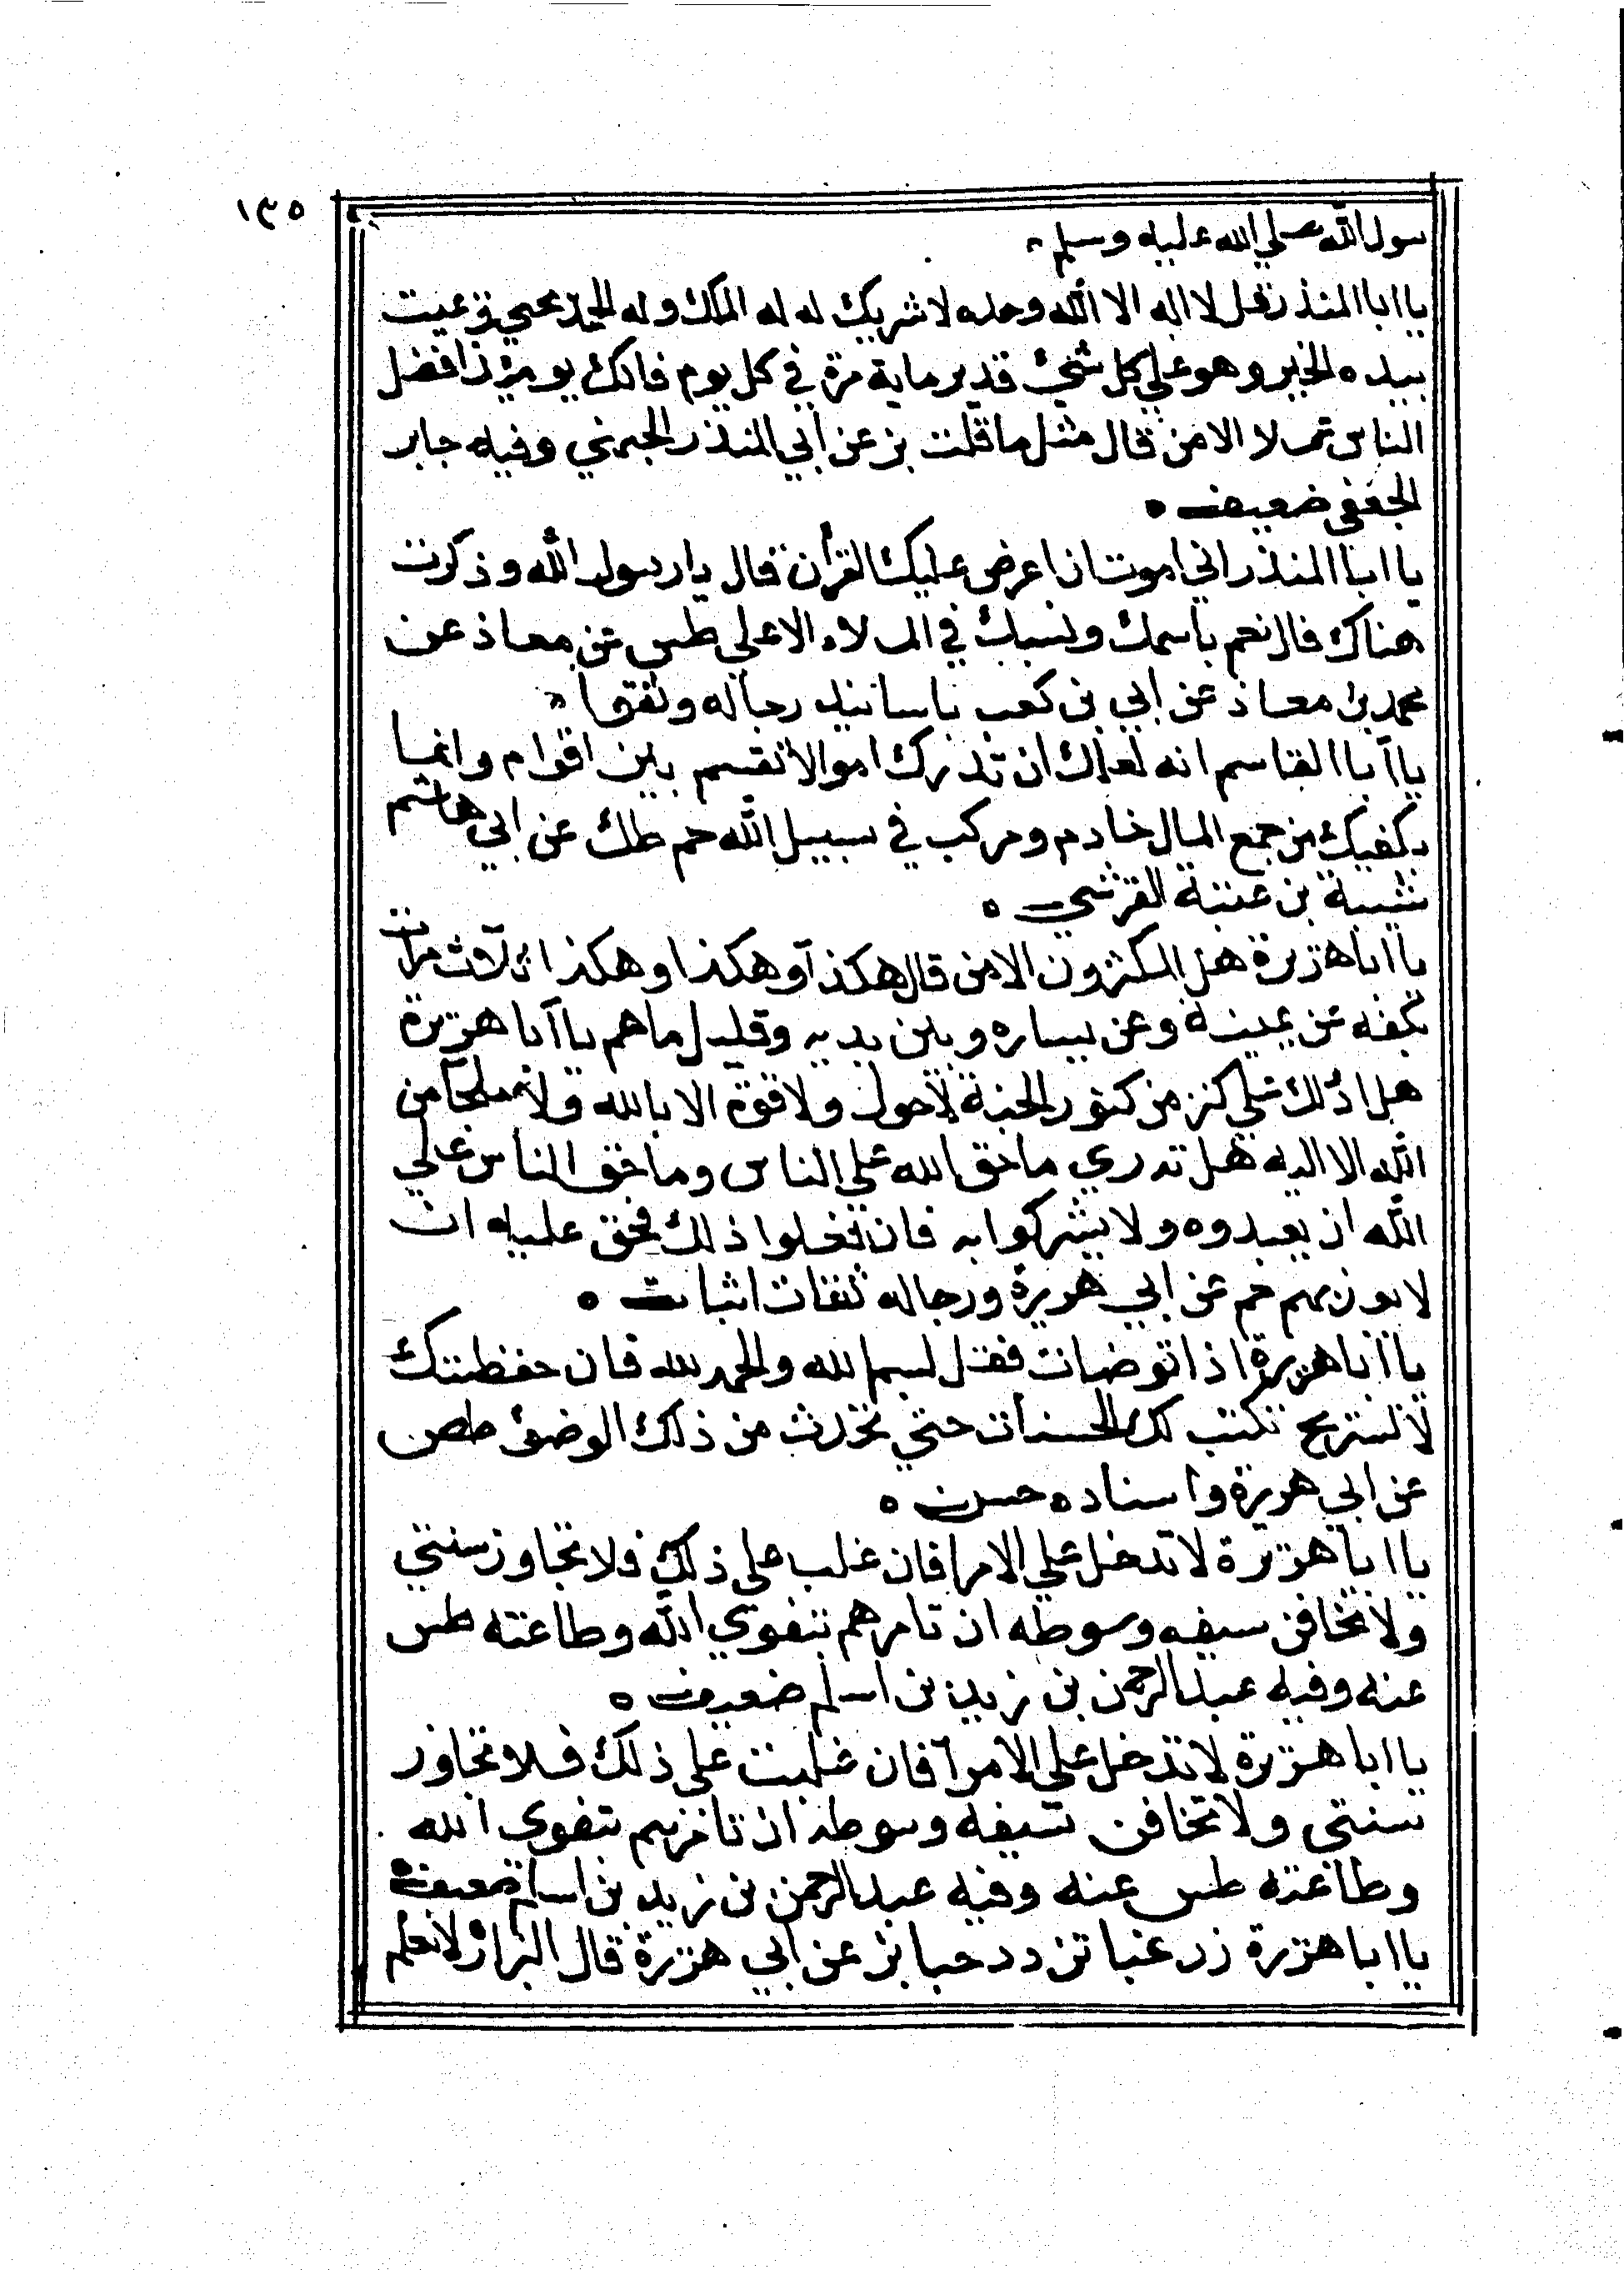 ١٣٥
سول الله صلي الله عليه وسلم
يا ابا المنذر قل لا اله الا الله وحده لا شريك له له الملك وله الحمد يحيي ويميت
بيده الخير وهو علي كل شئ قدير ماية مرة في كل يوم فانك يومئذ افضل
الناس عملا الا من قال مثل ما قلت بز عن ابي المنذر الجهني وفيه جابر
الجعفي ضعيف ه
يا ابا المنذر اني امرت ان اعرض عليك القرآن قال يا رسول الله وذكرت
هناك قال نعم باسمك ونسبك في الملاء الاعلي طس عن معاذ عن
محمد بن معاذ عن ابي بن كعب باسانيد رجاله وثقوا
يا ابا القاسم انه لعلك ان تدرك اموالا تقسم بين اقوام وانما
يكفيك من جمع المال خادم ومركب في سبيل الله حم طك عن ابي هاشم
شيبة بن عتبة القرشي ه
يا ابا هريرة هلك المكثرون الا من قال هكذا وهكذا وهكذا ثلاث مرات
بكفه عن يمينه وعن يساره وبين يديه وقليل ما هم يا ابا هريرة
هل ادلك علي كنز من كنوز الجنة لا حول ولا قوة الا بالله ولا ملجا من
الله الا اليه هل تدري ما حق الله علي الناس وما حق الناس علي
الله ان يعبدوه ولا يشركوا به فان فعلوا ذلك فحق عليه ان
لا يعذبهم حم عن ابي هريرة ورجاله ثقات اثبات ه
يا ابا هريرة اذا توضات فقل بسم الله والحمد لله فان حفظتك
لا تستريح تكتب لك الحسنات حتي تحدث من ذلك الوضوء طص
عن ابي هريرة واسناده حسن ه
يا ابا هريرة لا تدخل علي الامرا فان غلب علي ذلك فلا تجاوز سنتي
ولا تخافن سيفه وسوطه ان تامرهم بتقوي الله وطاعته طس
عنه وفيه عبد الرحمن بن زيد بن اسلم ضعيف ه
يا ابا هريرة لا تدخل علي الامرآ فان غلبت علي ذلك فلا تجاوز
سنتي ولا تخافن سيفه وسوطه ان تامرهم بتقوي الله
وطاعته طس عنه وفيه عبد الرحمن بن زيد بن اسلم ضعيف ه
يا ابا هريرة زر غبا تزدد حبا بز عن ابي هريرة قال البزار لا نعلم